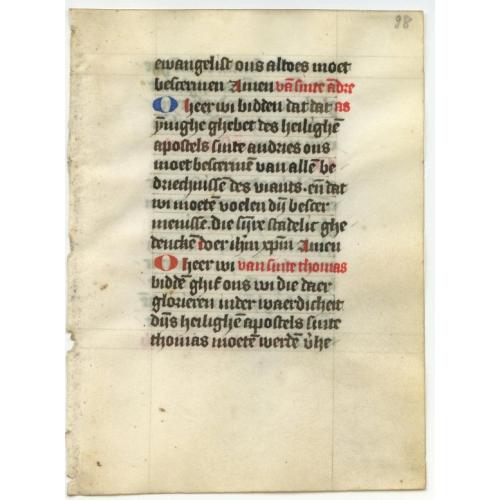 98
ewangelist ons altoes moet
bescermen Amen vā sinte ādre
O heer wi bidden dat dat as
ȳnighe ghebet des heilighē
apostels sinte andries ons
moet bescermē van allē be
driechnisse des viants. eñ dat
wi moetē voelen dÿ bescer
menisse. die sijre stadelic ghe
denckē doer ihm xpm̄ Amen
O heer wi van sinte thomas
biddē ghif ons wi die daer
glorieren inder waerdicheit
dijs heilighē apostels sinte
thomas moetē werdē v̓he